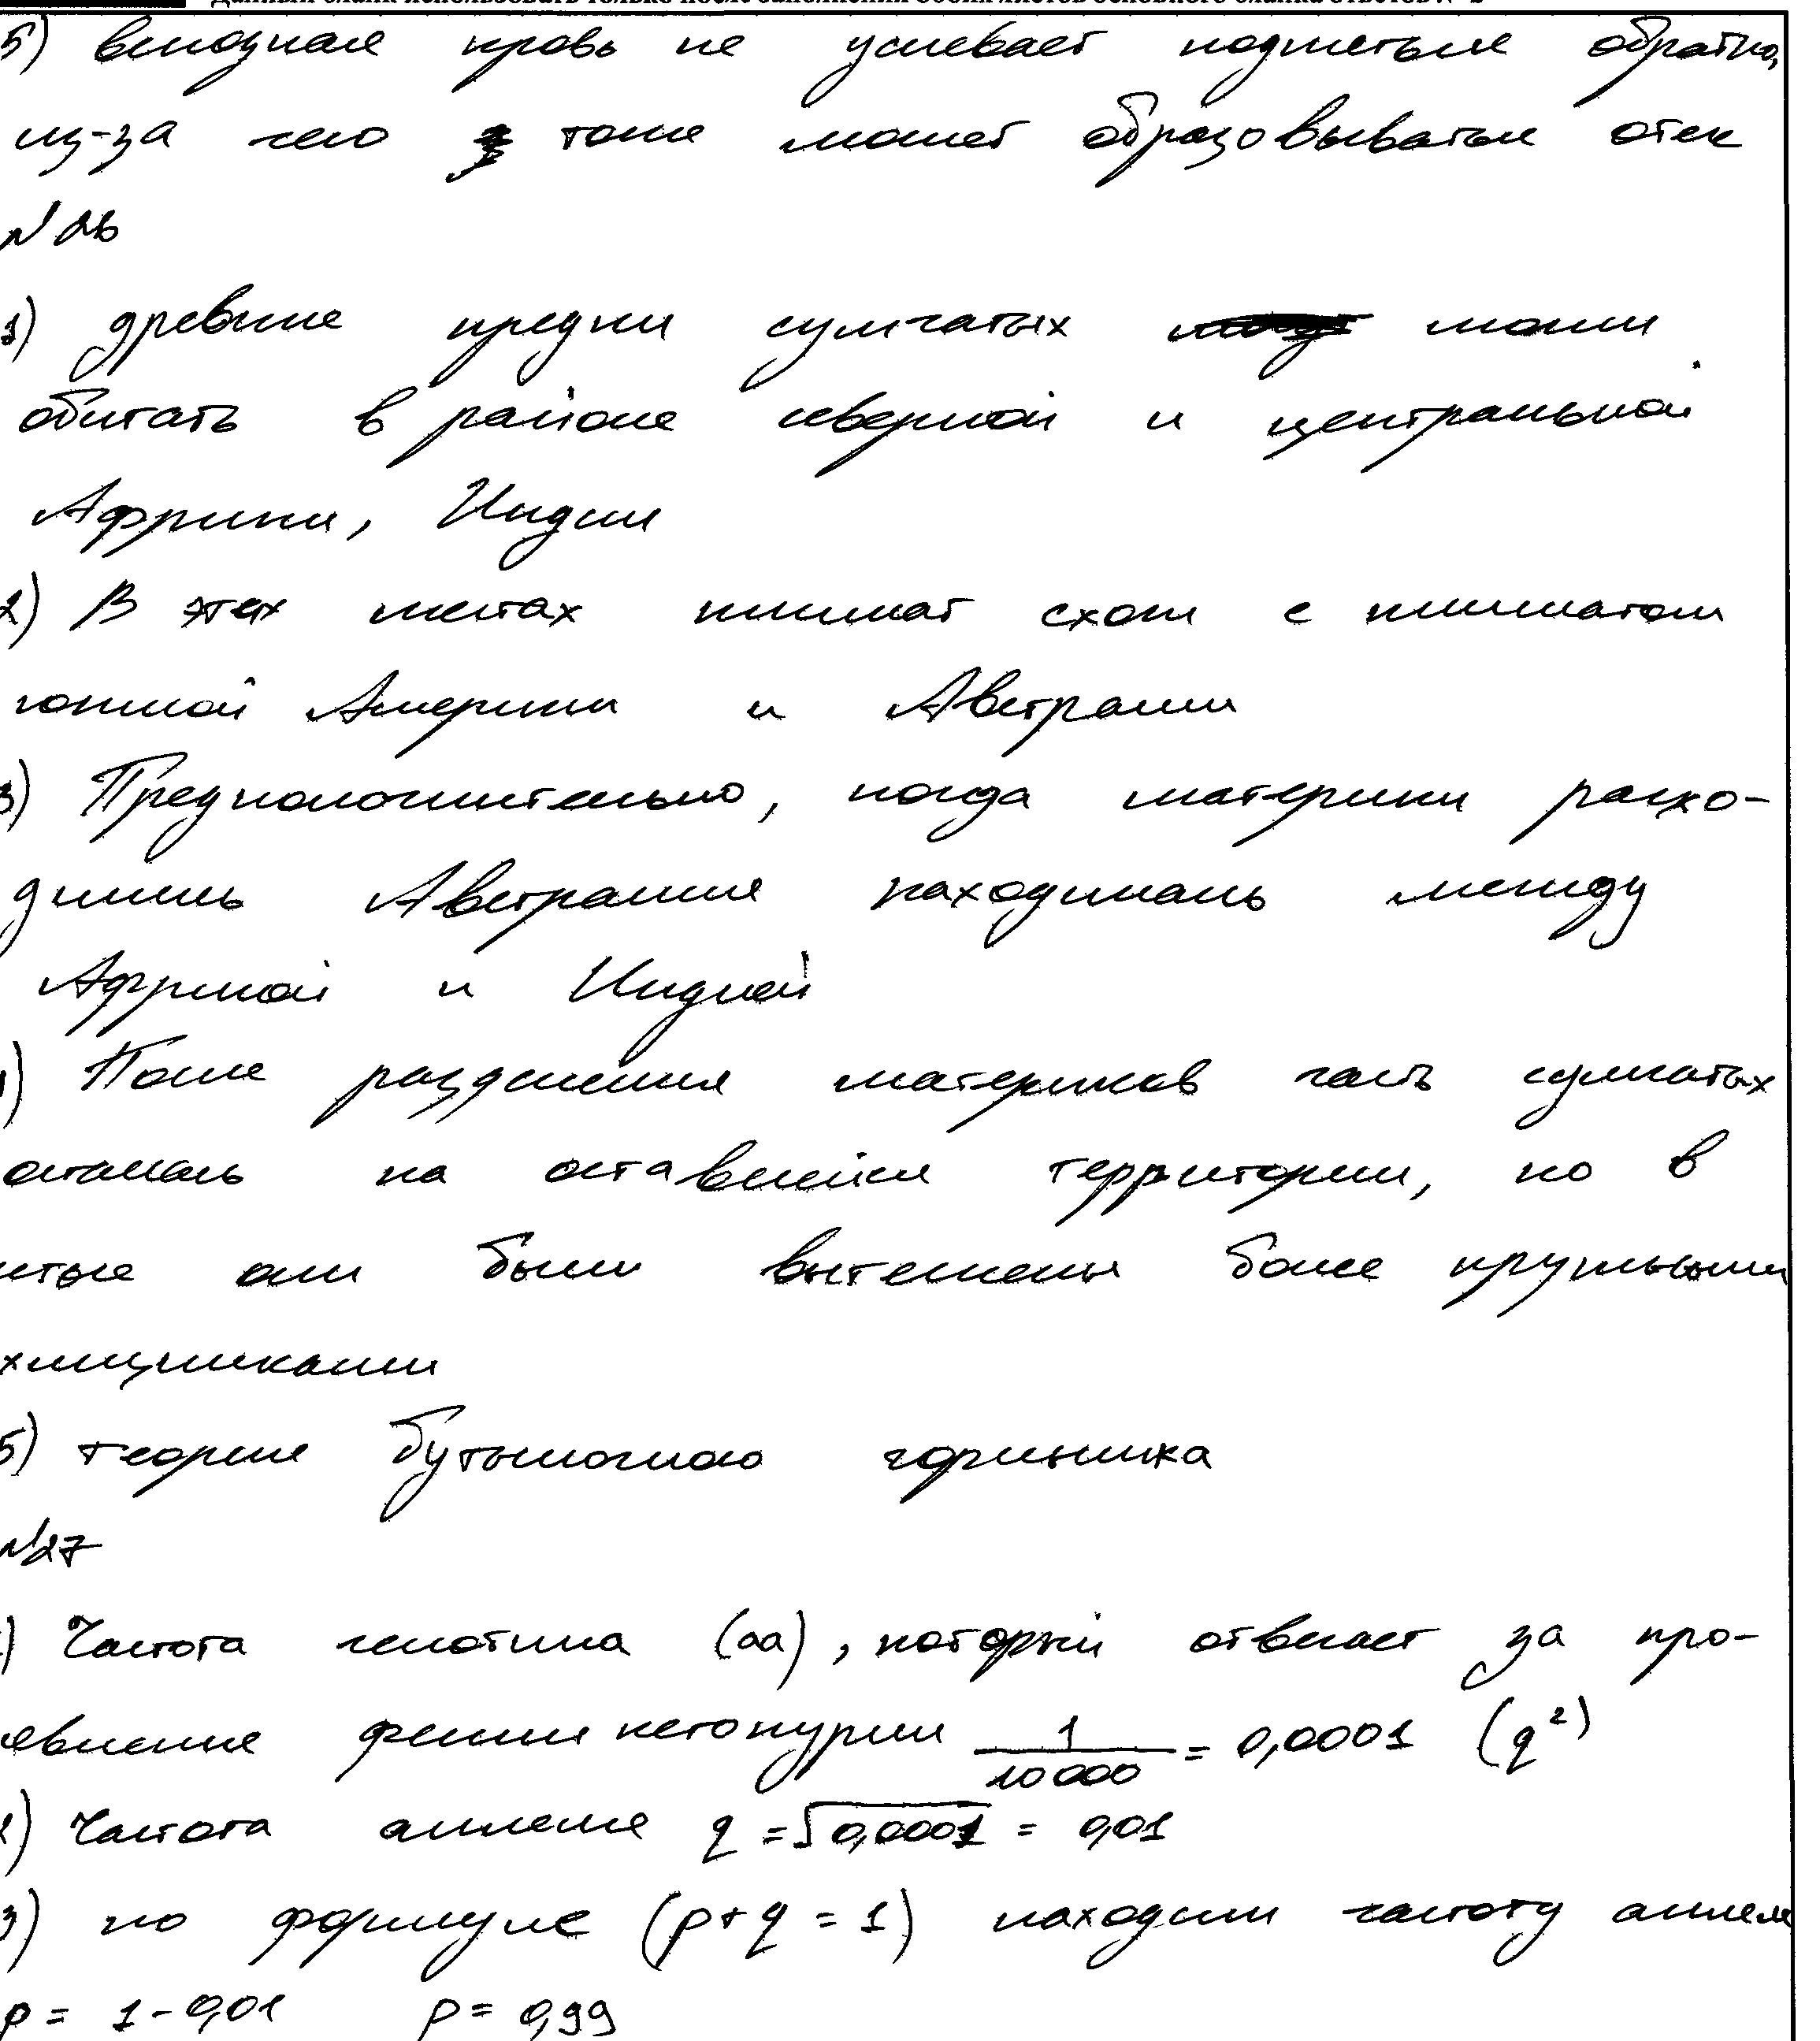 5) венозная кровь не успевает подняться обратно,
из-за чего тоже может образовываться отек
N 26
1) древние предки сумчатых могли
обитать в районе северной и центральной
Африки, Индии
2) В этих местах климат схож с климатом
южной Америки и Австралии
3) Предположительно, когда материки расхо-
дились Австралия находилась между
Африкой и Индией
4) После разделения материков часть сумчатых
осталась на оставшейся территории, но в
итоге они были вытеснены более крупными
хищниками
5) теория бутылочного горлышка
N27
1) Частота генотипа (аа), который отвечает за про-
явление фенилкетонурии 1/10000 = 0,0001 (q²)
2) Частота аллеля q = √0,0001 = 0,01
3) по формуле (p+q = 1) находим частоту аллеля
p = 1-0,01 p = 0,99